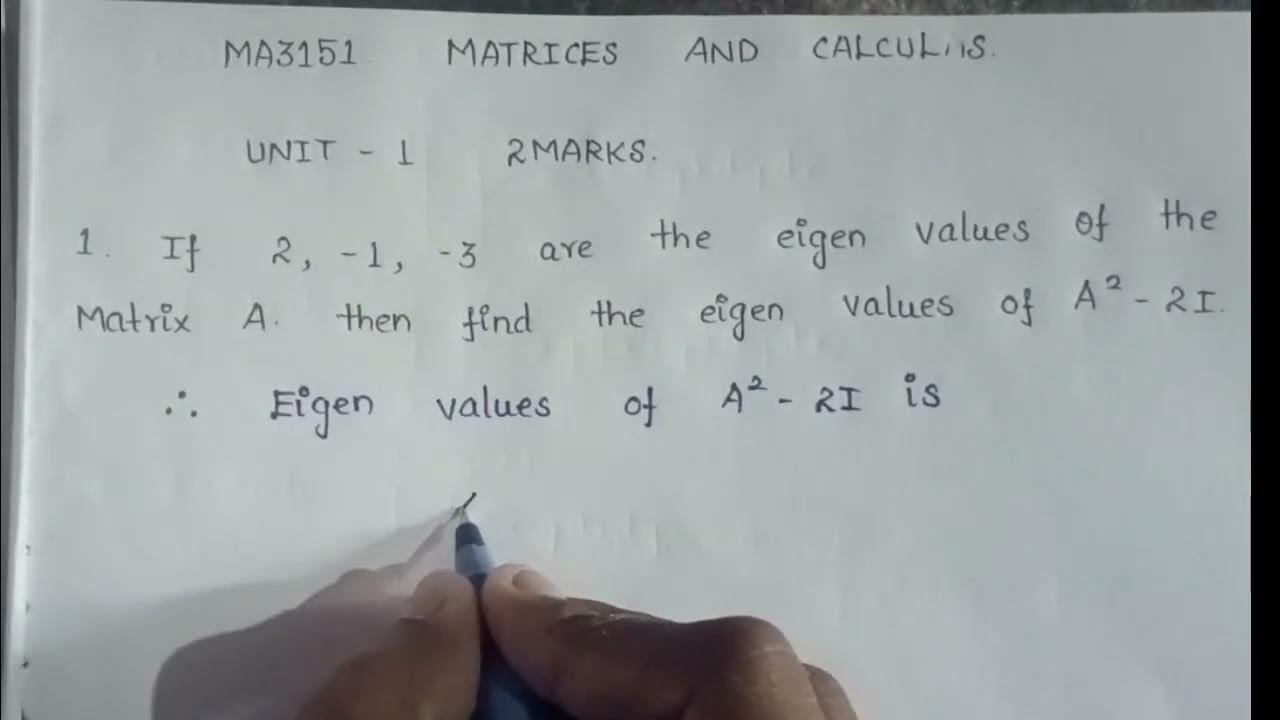 MA3151 MATRICES AND CALCULUS.
UNIT - 1 2MARKS.
1. If 2, -1, -3 are the eigen values of the
Matrix A. then find the eigen values of A² - 2I.
∴ Eigen values of A² - 2I is